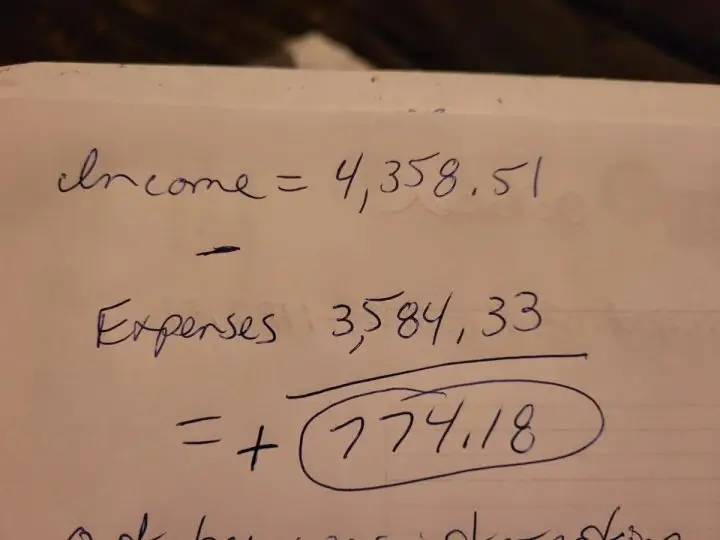 Income = 4,358.51
-
Expenses 3,584.33
= + 774.18